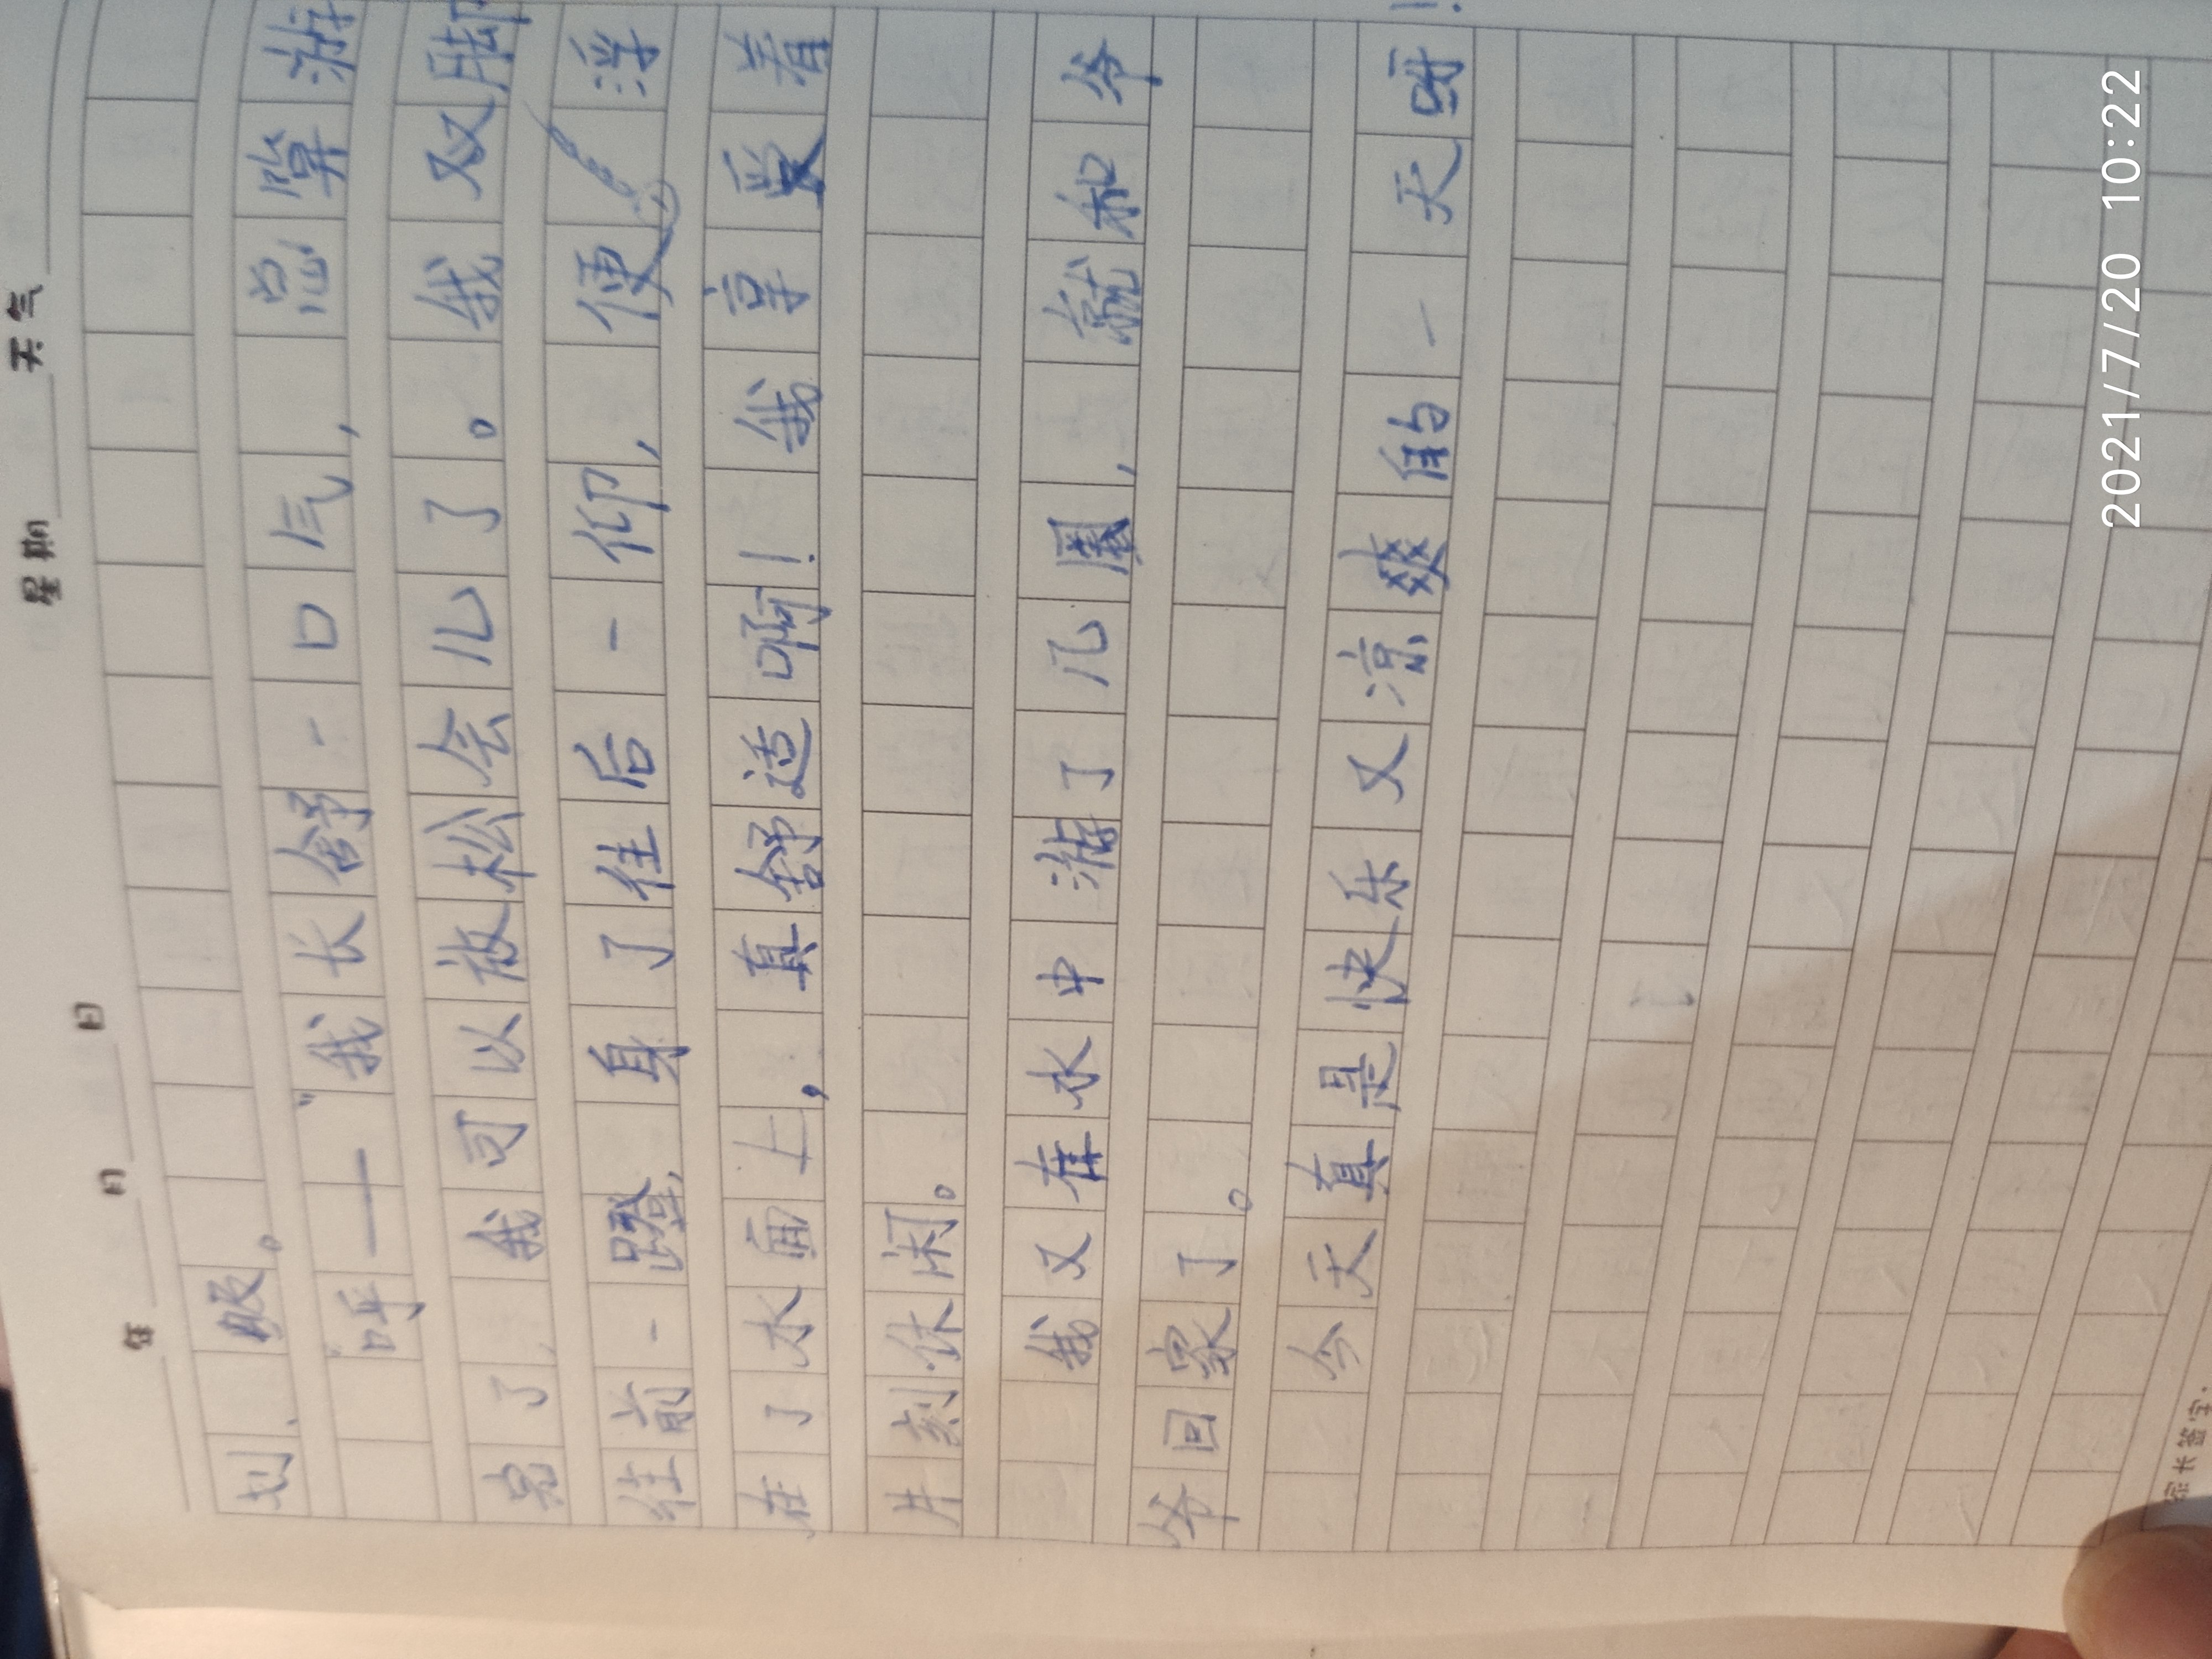 年 月 日 星期 天气
划、服。
“呼——”我长舒一口气，总算游
完了，我可以放松会儿了。我双脚
往前一蹬，身了往后一仰，便 浮
在了水面上，真舒适啊！我享受着
片刻休闲。
我又在水中游了几圈，就和爷
爷回家了。
今天真是快乐又凉爽的一天呀！
家长签字：
2021/7/20 10:22